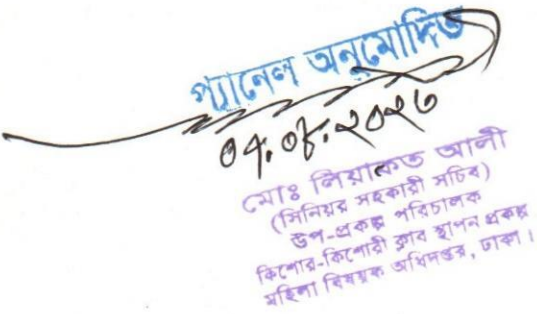 প্যানেল অনুমোদিত
০৭.০৮.২০২৩
মোঃ লিয়াকত আলী
(সিনিয়র সহকারী সচিব)
উপ-প্রকল্প পরিচালক
কিশোর-কিশোরী ক্লাব স্থাপন প্রকল্প
মহিলা বিষয়ক অধিদপ্তর, ঢাকা।